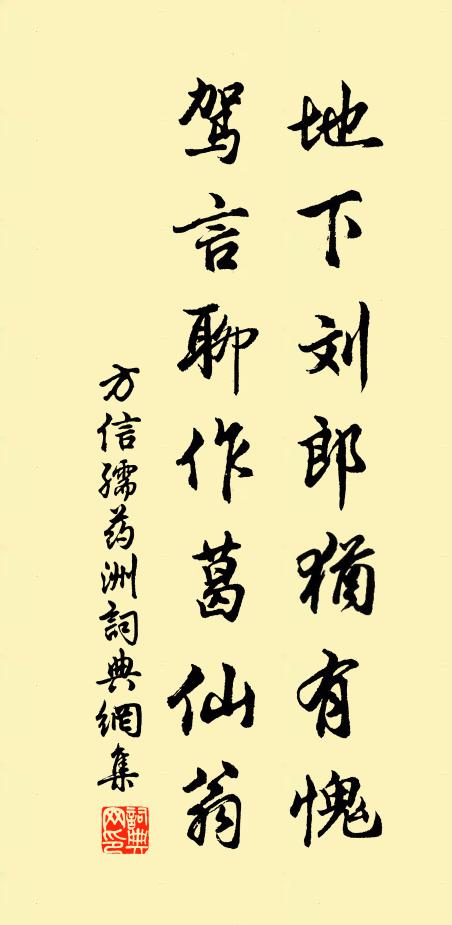 地下刘郎犹有愧
驾言聊作葛仙翁
方信孺药洲詞典網集
詞典网印